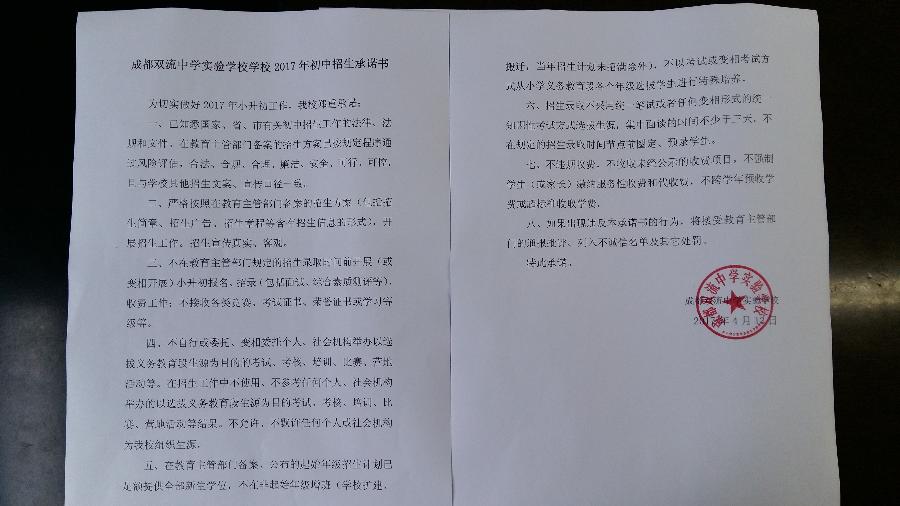 成都双流中学实验学校学校 2017 年初中招生承诺书
为切实做好 2017 年小升初工作，我校郑重承诺：
一、已知悉国家、省、市有关初中招生工作的法律、法
规和文件，在教育主管部门备案的招生方案已按规定程序通
过风险评估，合法、合规、合理、廉洁、安全、可行、可控，
且与学校其他招生文案、宣传口径一致。
二、严格按照在教育主管部门备案的招生方案（包括招
生简章、招生广告、招生章程等含有招生信息的形式），开
展招生工作。招生宣传真实、客观。
三、不在教育主管部门规定的招生录取时间前开展（或
变相开展）小升初报名、招录（包括面试、综合素质测评等）、
收费工作；不接收各类竞赛、考试证书、荣誉证书或学习等
级等。
四、不自行或委托、变相委托个人、社会机构举办以选
拔义务教育段生源为目的的考试、考核、培训、比赛、营地
活动等。在招生工作中不使用、不参考任何个人、社会机构
举办的以选拔义务教育段生源为目的考试、考核、培训、比
赛、营地活动等结果。不允许、不默许任何个人或社会机构
为我校组织生源。
五、在教育主管部门备案、公布的起始年级招生计划已
足额提供全部新生学位，不在非起始年级增班（学校扩建、
搬迁，当年招生计划未招满除外），不以考试或变相考试方
式从小学义务教育段各个年级选拔学生进行特殊培养。
六、招生录取不采用统一笔试或者任何变相形式的统一
知识性考试方式选拔生源，集中面谈的时间不少于三天，不
在规定的招生录取时间节点前圈定、预录学生。
七、不违规收费。不收取未经公示的收费项目，不强制
学生（或家长）缴纳服务性收费和代收费，不跨学年预收学
费或超标准收取学费。
八、如果出现违反本承诺书的行为，将接受教育主管部
门的通报批评、列入不诚信名单及其它处罚。
特此承诺。
成都双流中学实验学校
2017 年 4 月 12 日
成都双流中学实验学校